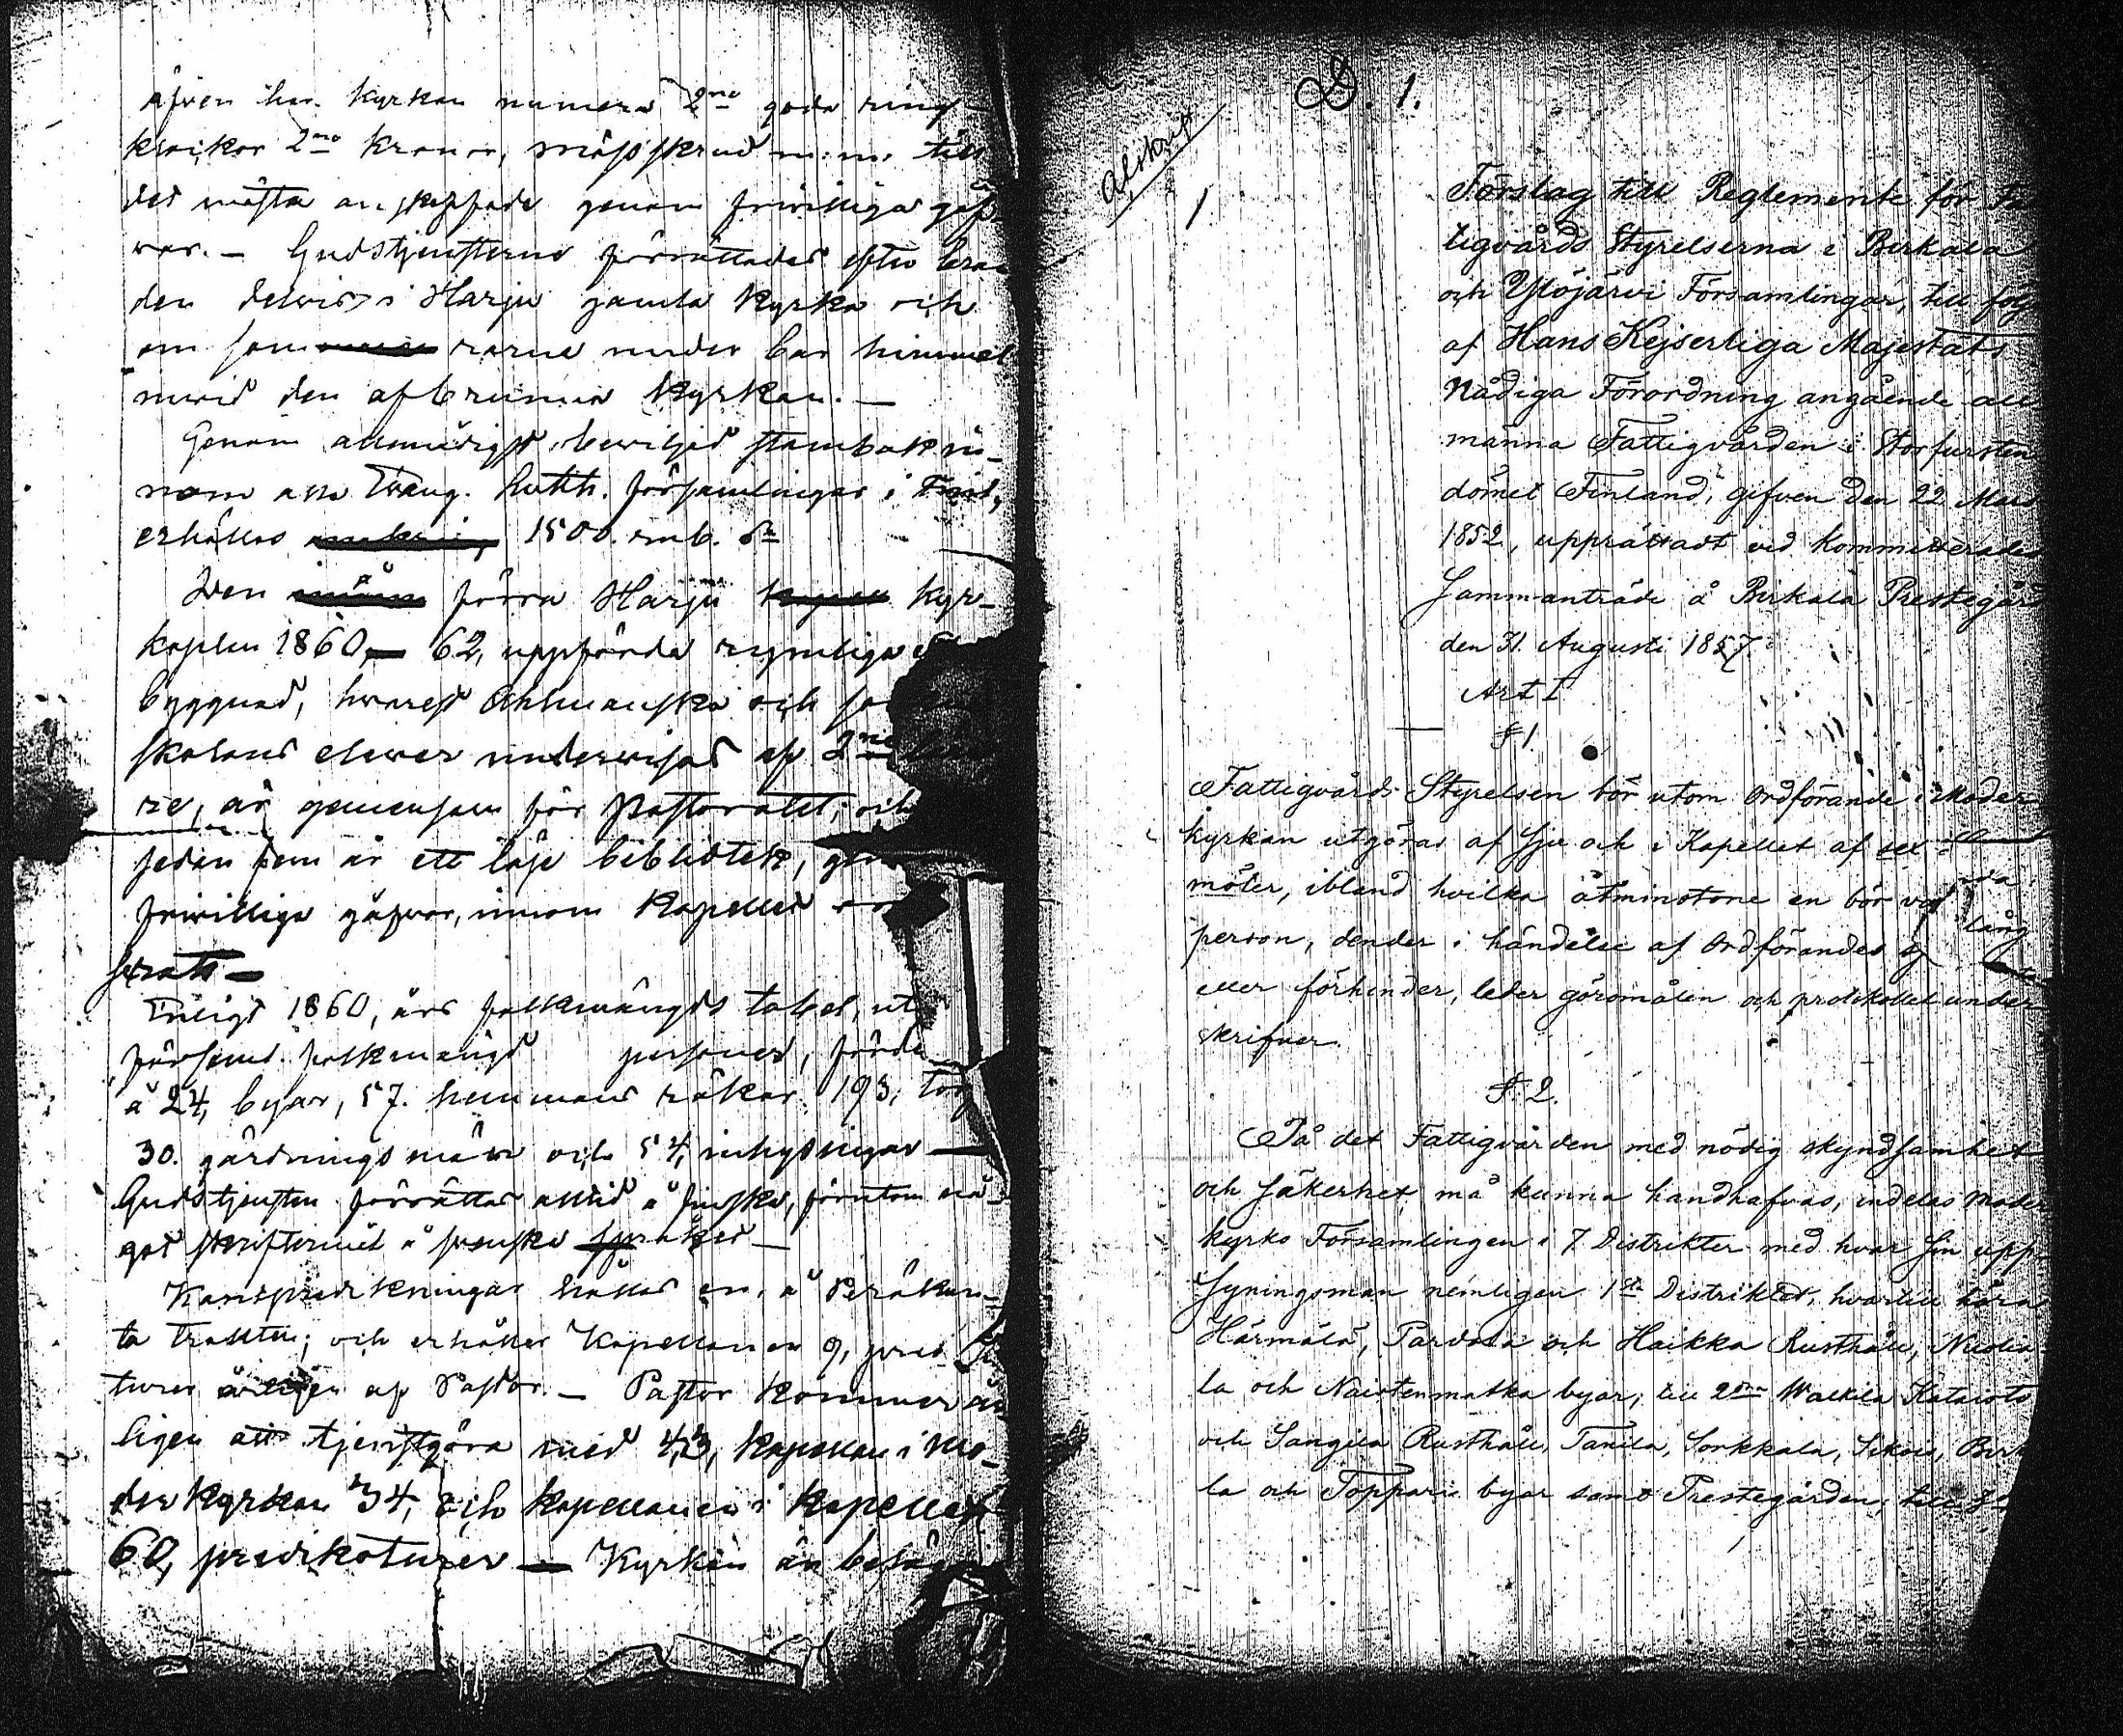 äfven har kyrkan numera 2ne goda ring-
klockor 2ne kronor, mässskrud m.m. till
det mästa anskaffade genom friwilliga gåf-
vor. — Gudstjensterne förrättades efter bran-
den delvis i Harju gamla kyrka och
om som rarne under bar himmel
invid den afbrunna kyrkan. —
Genom allernådigst beviljad stambok in-
nom alla Evang. Luth. församlingar i Finl,
erhållos 1500. rub. Sr
Den förra Harju kyr-
koplen 1860, — 62, uppförda rymliga
byggnad, hvarest Ahlmanska och
skolans elever undervisas af 2ne
re, är gemensam för Pastoratet; och
sedan fem år ett läse bibliotek,
friwilliga gåfvor, innom Kapellet
serats —
Enligt 1860, års folkmängds tabel, ut
församl. folkmängd personer, förde
å 24, byar, 57. hemmans rökar. 193, torp
30. gärdningsmän och 54, inhysningar —
Gudstjensten förrättas alltid å finska, förutom nå-
got skriftermål å svenska språket —
Kanspredikningar hållas en, å
ta trakten; och erhåller Kapellanen 9, pred
turer årligen af Pastor. — Pastor kommer
ligen att tjenstgöra med 43, Kapellan i Mo-
der kyrkan 34, och kapellanen i kapellet
60, predikoturer — Kyrkan är
Afskrift
D. 1.
1
Förslag till Reglemente för
tigvårds Styrelserna i Birkala
och Ylöjärvi Församlingar, till följd
af Hans Kejserliga Majestäts
Nådiga Förordning angående all
männa Fattigvården i Storfursten
dömet Finland, gifven den 22 Mars
1852, upprättadt vid kommitterades
Sammanträde å Birkala Prestegård
den 31. Augusti 1857.
Art I
§ 1.
Fattigvårds Styrelsen bör utom Ordförande i Moder
kyrkan utgöras af sju och i Kapellet af sex
möter, ibland hvilka åtminstone en bör
person, dender i händelse af Ordförandes
eller förhinder, leder göromålen och protokollet under
skrifver.
§. 2.
På det Fattigvården med nödig skyndsamhet
och säkerhet må kunna handhafvas, indelas Moder
kyrko Församlingen i 7 Distrikter med hvar sin upp
syningsman nemligen 1sta Distriktet, hvartill höra
Härmälä, Parvola och Haikka Rusthåll,
la och Naistenmatka byar; till 2dra Walkila
och Sangila Rusthåll, Tanila, Sorkkala,
la och Toppari byar samt Prestegården; till